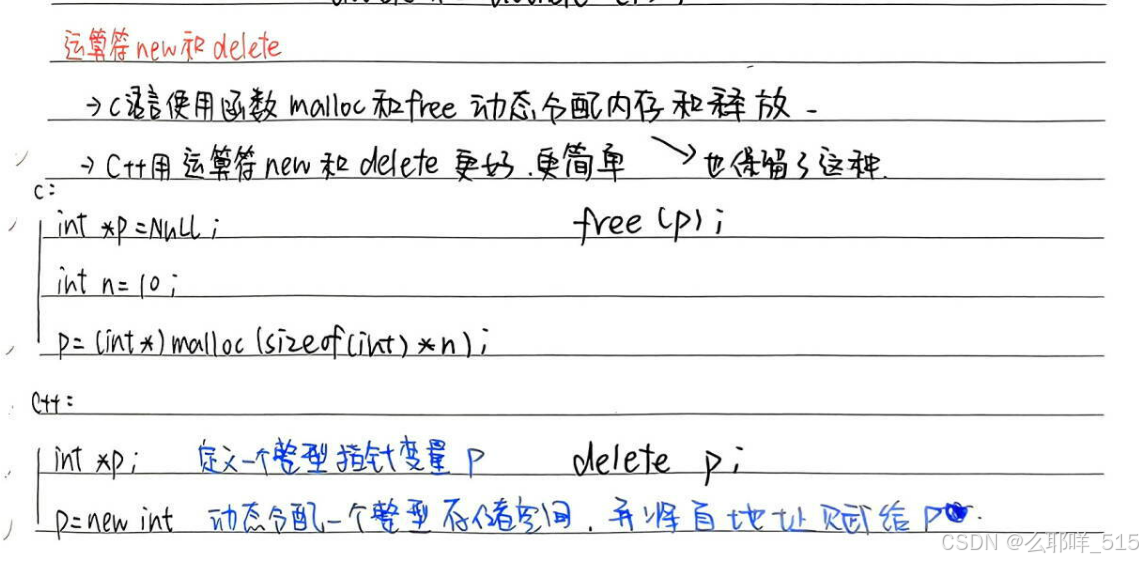 运算符new和delete
→C语言使用函数malloc和free动态分配内存和释放
→C++用运算符new和delete更好.更简单 →也保留了这种.
C:
int *p=NULL; free(p);
int n=10;
p=(int*)malloc(sizeof(int)*n);
C++:
int *p; 定义一个整型指针变量p delete p;
p=new int 动态分配一个整型存储空间,并将首地址赋给p.
CSDN @么耶咩_515